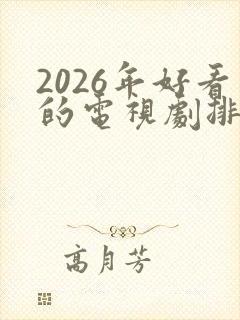 2026年好看
的電視劇排
高月芳